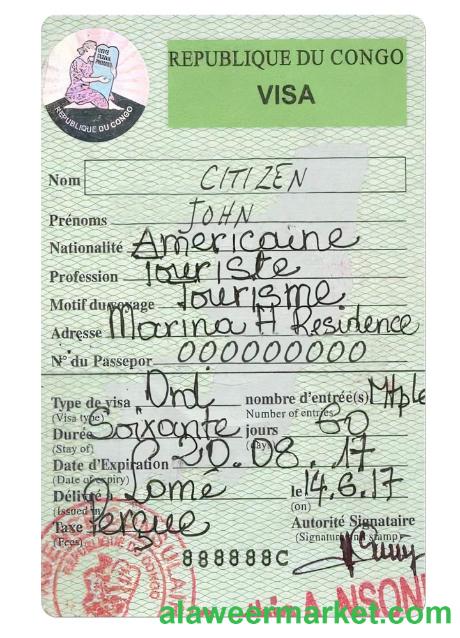 REPUBLIQUE DU CONGO
VISA
REPUBLIQUE DU CONGO
Nom CITIZEN
Prénoms JOHN
Nationalité Américaine
Profession Touriste
Motif du voyage Tourisme
Adresse Marina H Residence
N° du Passepor 000000000
Type de visa Ord nombre d'entrée(s) Mtple
(Visa type) Number of entries
Durée Soixante jours 60
(Stay of) (days)
Date d'Expiration 20.08.17
(Date of expiry)
Délivré à Lomé le 14.6.17
(Issued in) (on)
Taxe Perçue Autorité Signataire
(Fees) (Signature and stamp)
888888C
alaweermarket.com